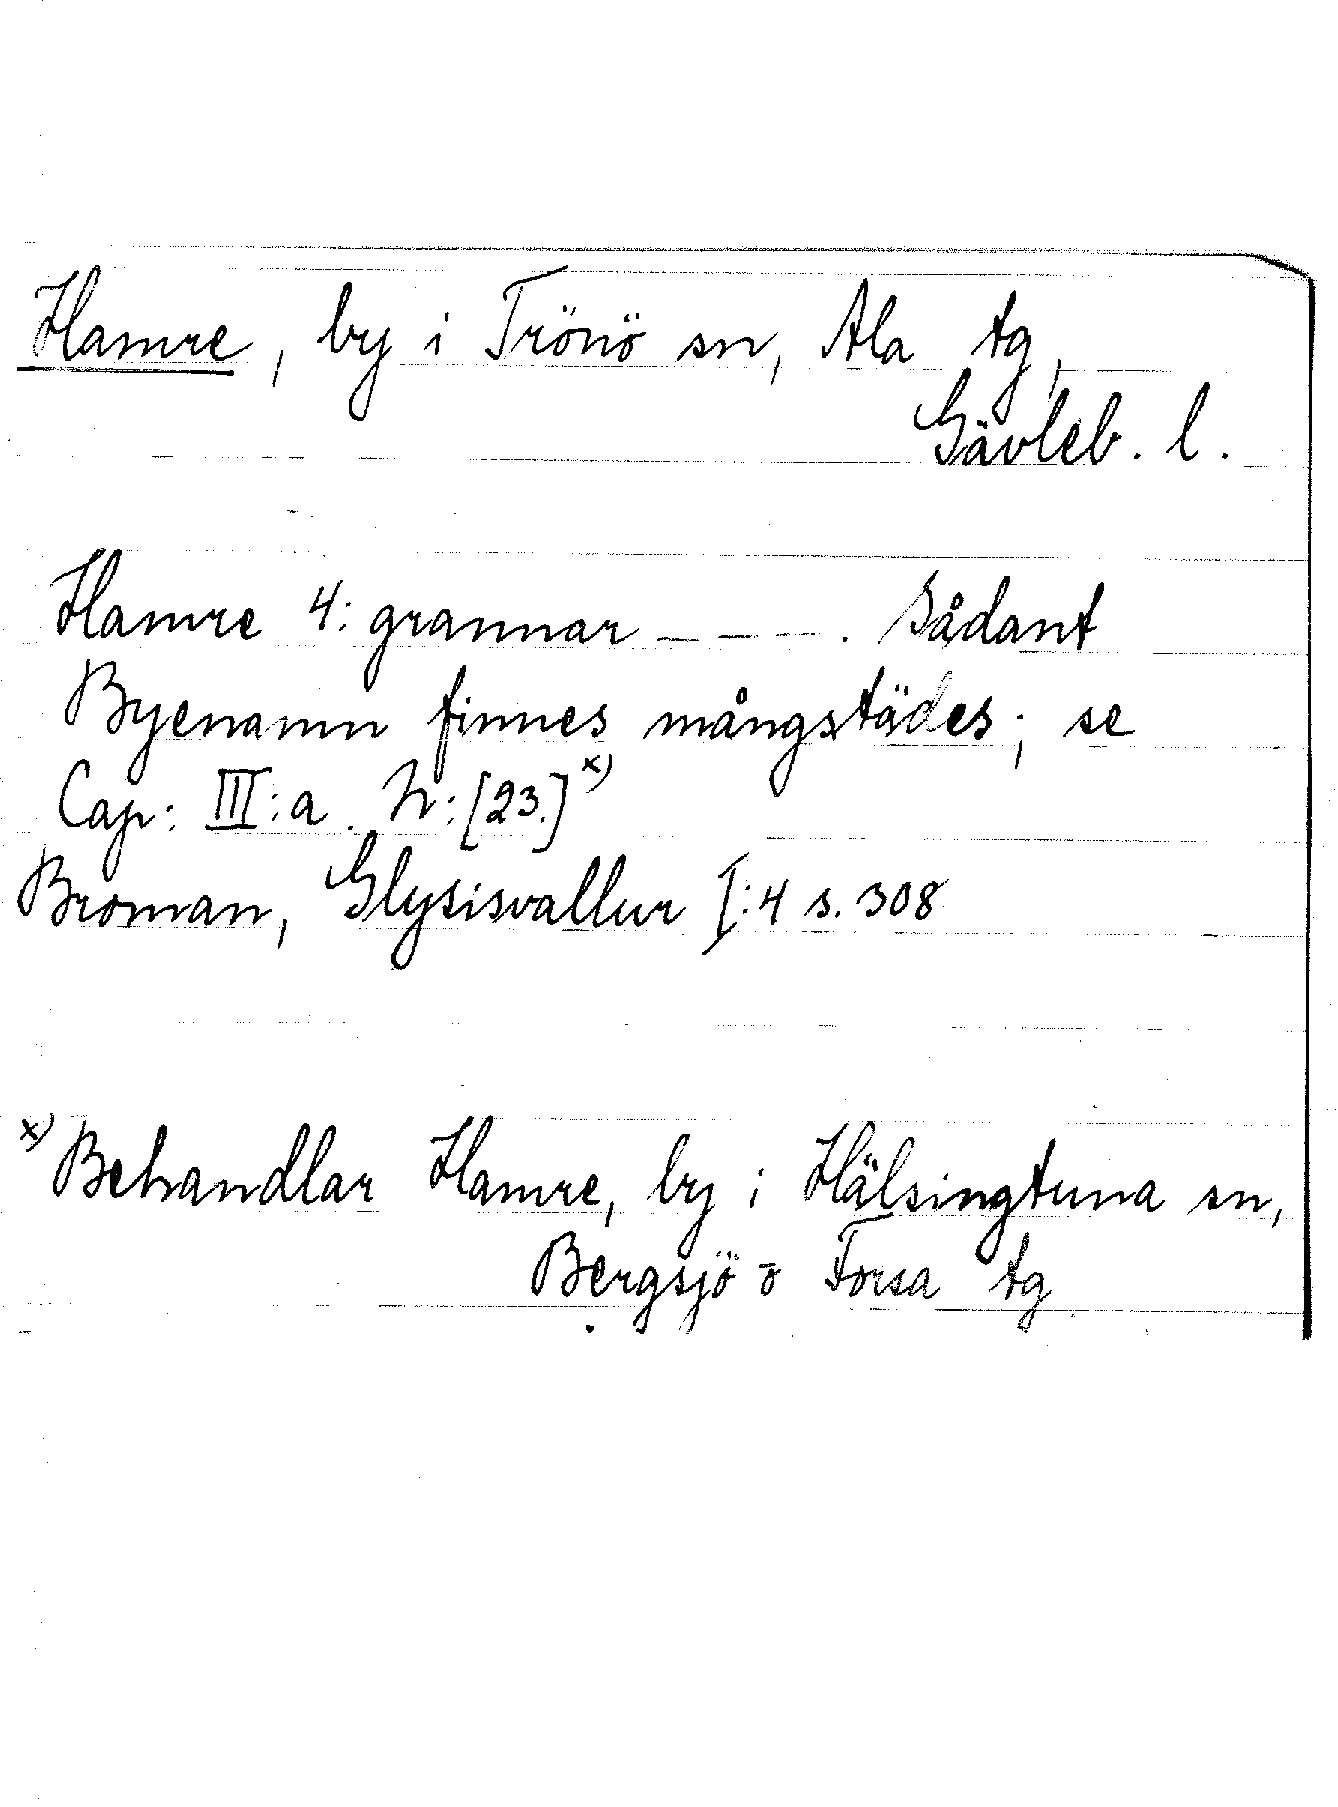 Hamre, by i Trönö sn, Ala tg,
Gävleb. l.
Hamre 4: grannar - - - -. Sådant
Byenamn finnes mångstädes; se
Cap: III:a. N:[23.]x)
Broman, Glysisvallur I:4 s. 308
x) Behandlar Hamre, by i Hälsingtuna sn,
Bergsjö o Forsa tg